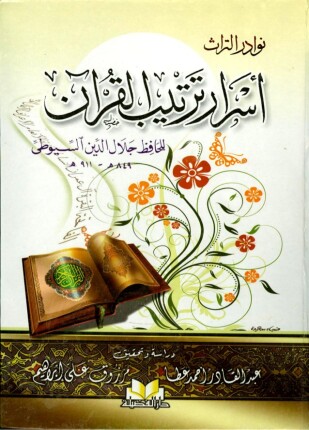 نوادر التراث
أسرار ترتيب القرآن
للحافظ جلال الدين السيوطي
٨٤٩ هـ - ٩١١ هـ
دراسة وتحقيق
عبد القادر أحمد عطا
مرزوق على إبراهيم
دار الفضيلة